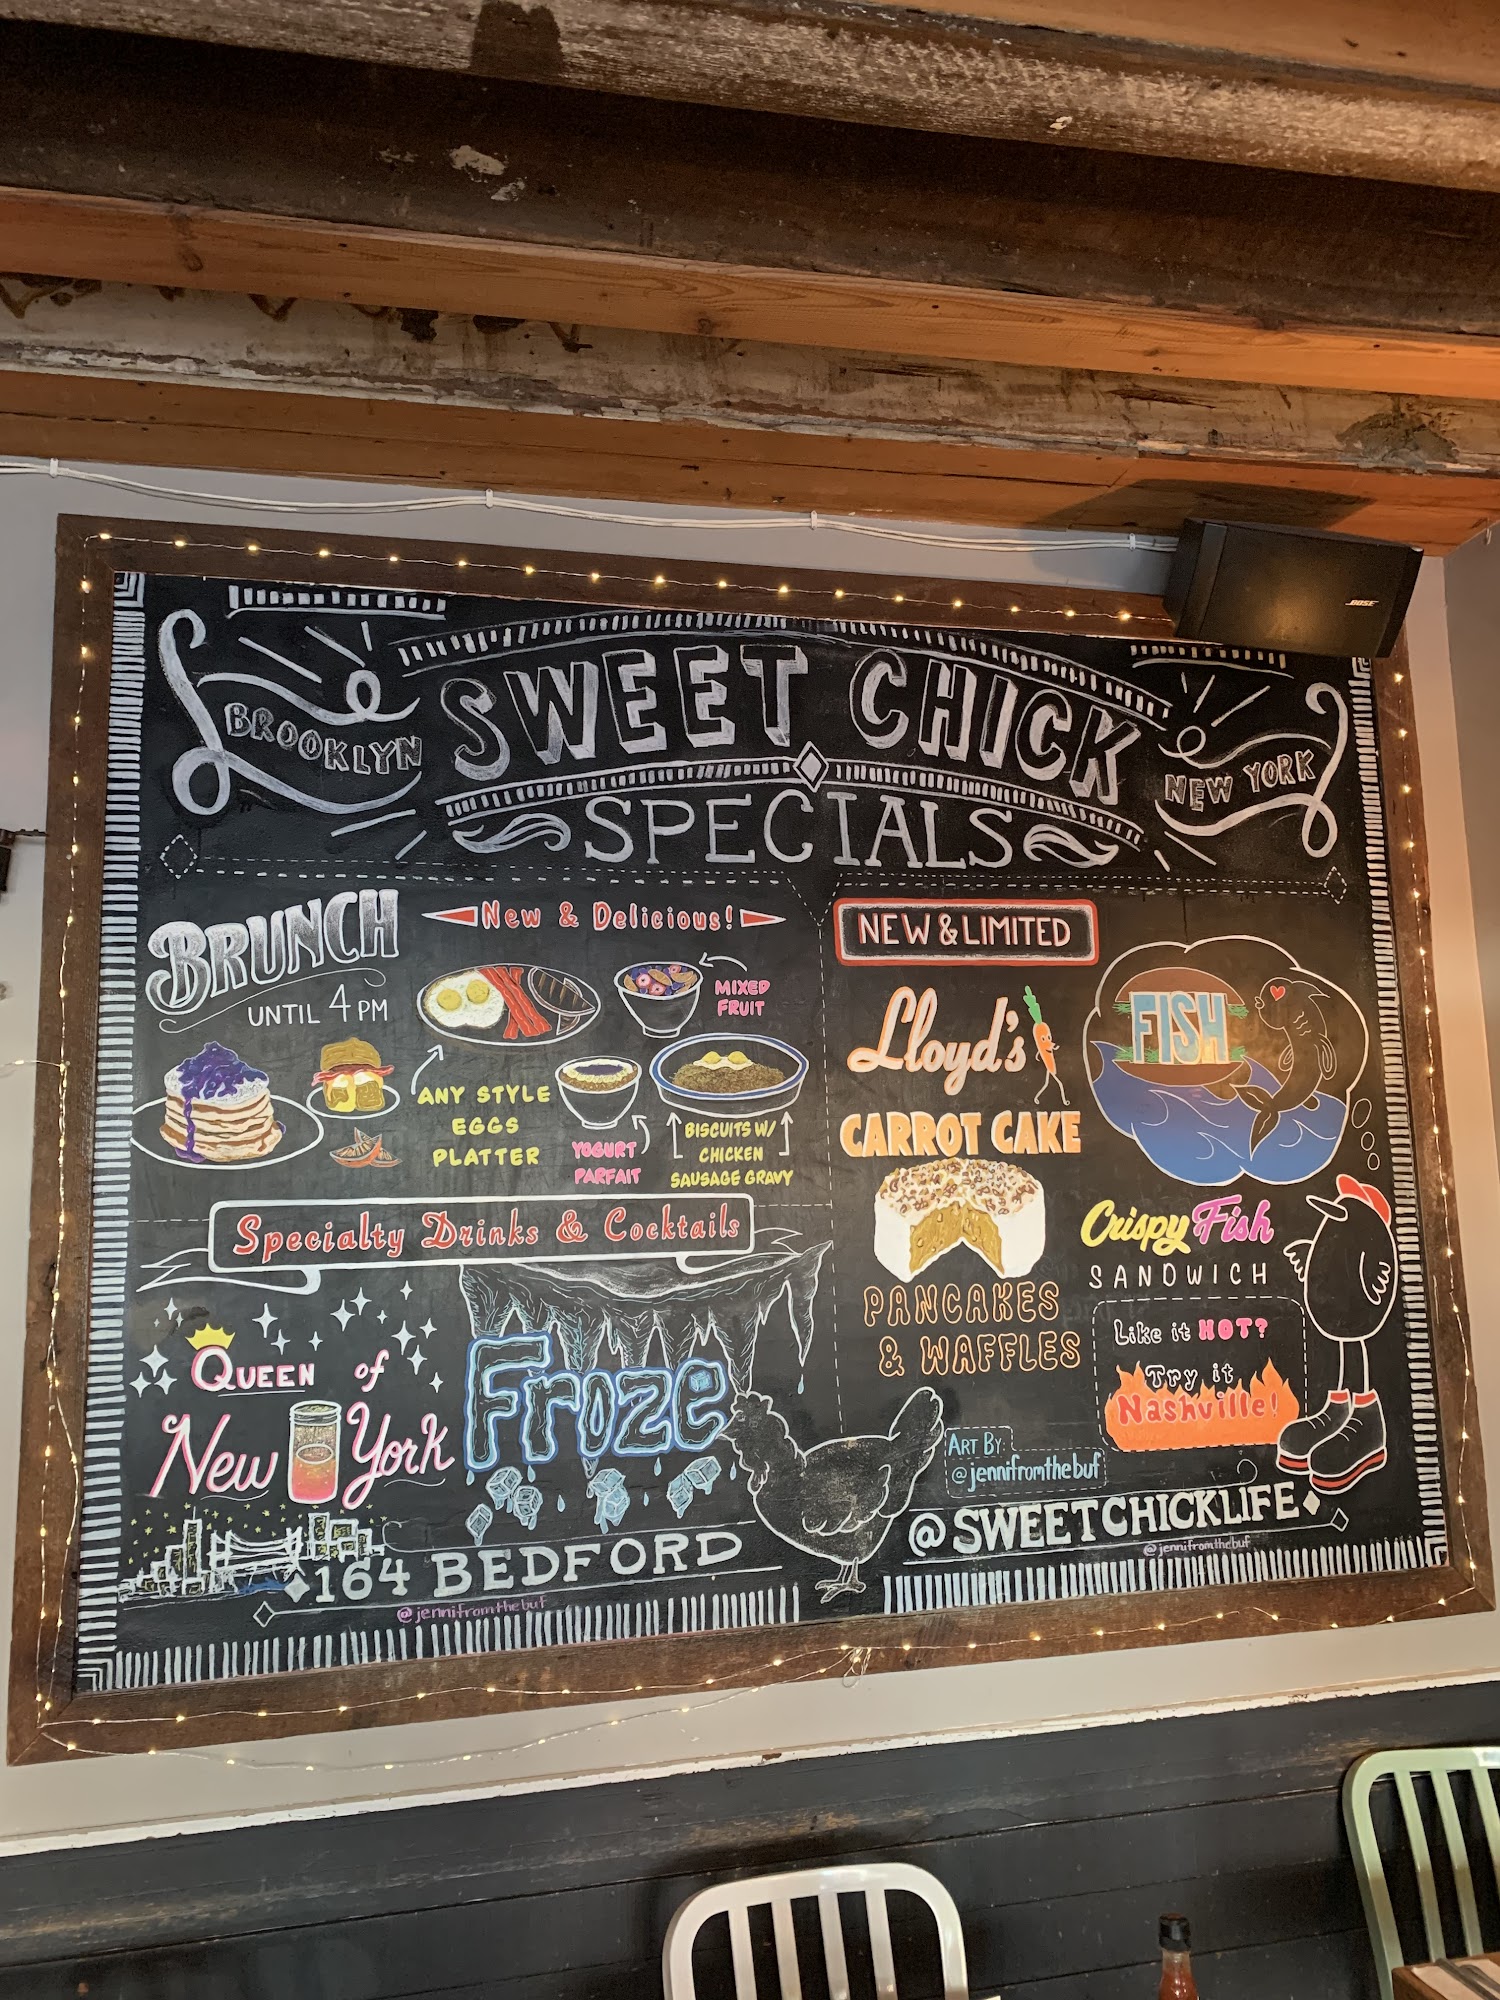 BOSE
BROOKLYN
SWEET CHICK
NEW YORK
SPECIALS
BRUNCH
UNTIL 4 PM
New & Delicious!
MIXED
FRUIT
ANY STYLE
EGGS
PLATTER
YOGURT
PARFAIT
BISCUITS W/
CHICKEN
SAUSAGE GRAVY
Specialty Drinks & Cocktails
QUEEN of
New York
Froze
164 BEDFORD
@jennifromthebuf
NEW & LIMITED
Lloyd's
CARROT CAKE
PANCAKES
& WAFFLES
FISH
Crispy Fish
SANDWICH
Like it HOT?
Try it
Nashville!
ART BY:
@jennifromthebuf
@SWEETCHICKLIFE
@jennifromthebuf